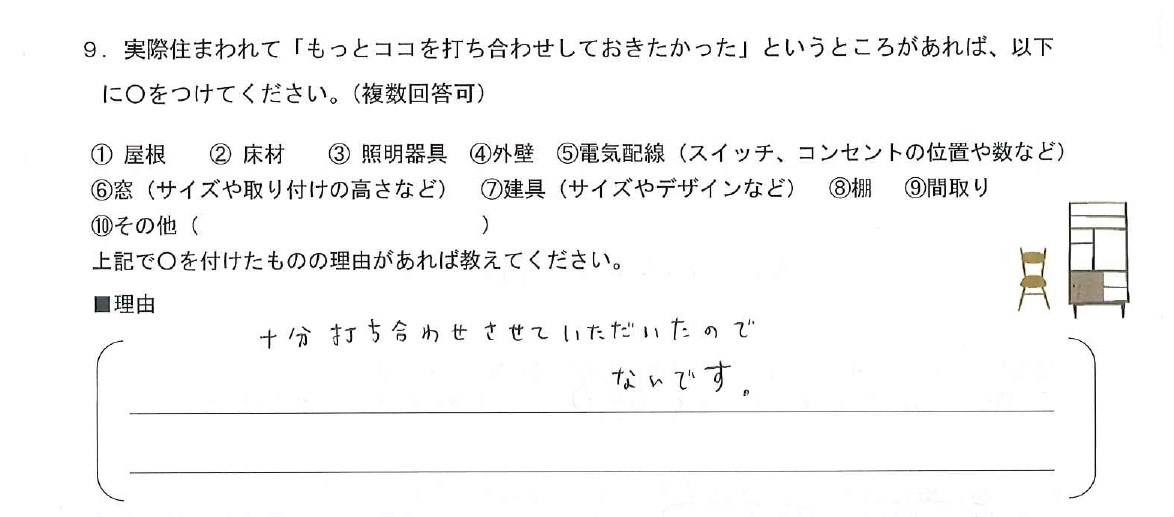 9．実際住まわれて「もっとココを打ち合わせしておきたかった」というところがあれば、以下
に〇をつけてください。（複数回答可）
① 屋根　② 床材　③ 照明器具　④外壁　⑤電気配線（スイッチ、コンセントの位置や数など）
⑥窓（サイズや取り付けの高さなど）　⑦建具（サイズやデザインなど）　⑧棚　⑨間取り
⑩その他（　　　　　　　　　　　　　）
上記で〇を付けたものの理由があれば教えてください。
■理由
十分打ち合わせさせていただいたので
ないです。